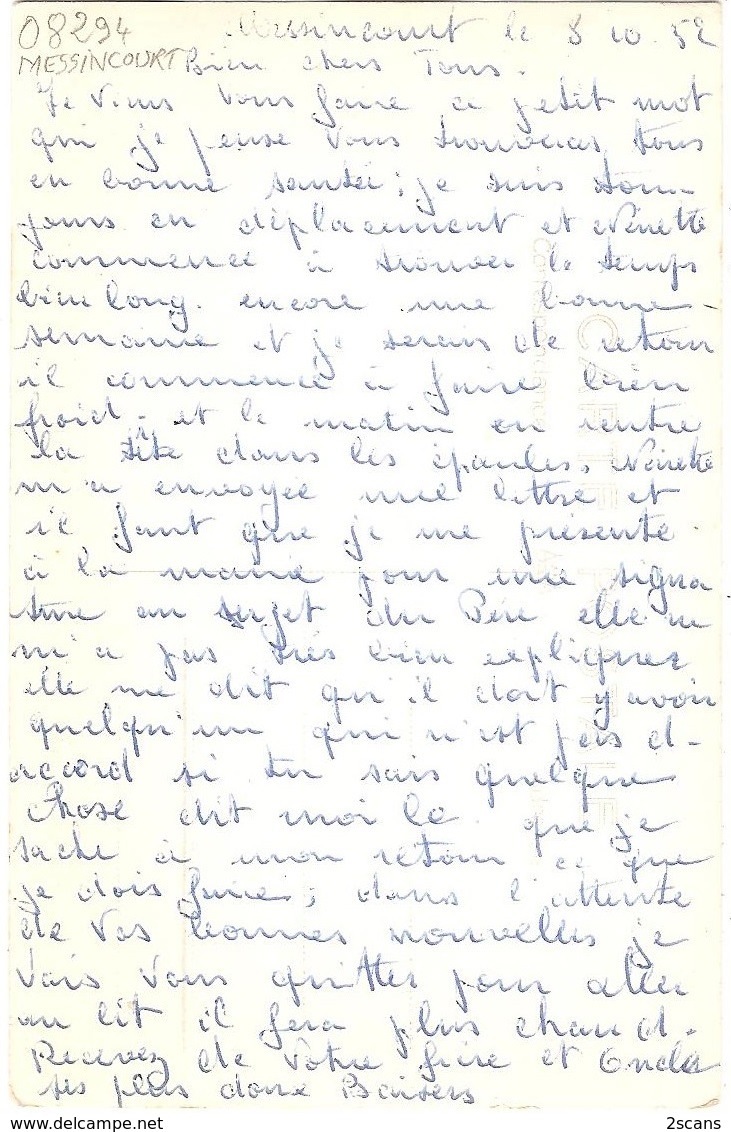 08294
MESSINCOURT
Messincourt le 8 10 52
Bien chers Tous.
Je viens vous faire ce petit mot
qui je pense vous trouveras tous
en bonne santée ; je suis tou-
jours en déplacement et Nénette
commence à trouver le temps
bien long. encore une bonne
semaine et je serais de retour
il commence à faire bien
froid. et le matin on rentre
la tête dans les épaules. Nénette
m'a envoyée une lettre et
il faut que je me présente
à la mairie pour une signa
ture au sujet du Père elle ne
m'a pas très bien expliquer
elle me dit qu'il doit y avoir
quelqu'un qui n'est pas d-
accord si tu sais quelque
chose dit moi le que je
sache à mon retour ce que
je dois faire ; dans l'attente
de vos bonnes nouvelles je
vais vous quitter pour aller
au lit il fera plus chaud.
Recevez de votre frère et Oncle
ses plus doux Baisers
CARTE POSTALE
2scans